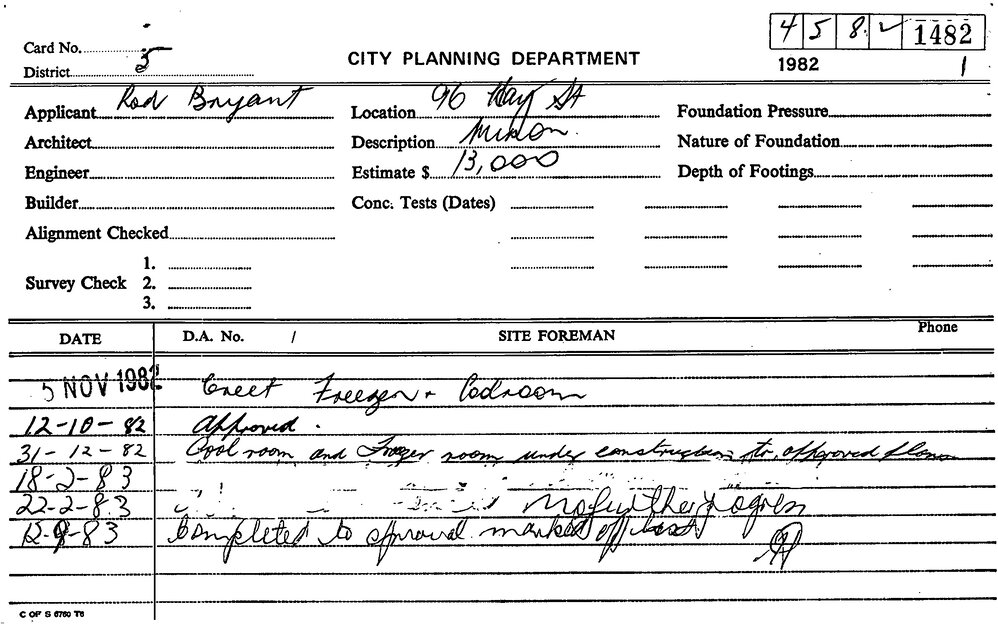 4 5 8 2 1482
Card No.
District 5
CITY PLANNING DEPARTMENT
1982 1
Applicant Rod Bryant
Location 96 Hay St
Foundation Pressure
Architect
Description Minor.
Nature of Foundation
Engineer
Estimate $ 13,000
Depth of Footings
Builder
Conc. Tests (Dates)
Alignment Checked
Survey Check 1.
2.
3.
DATE D.A. No. / SITE FOREMAN Phone
5 NOV 1982 Erect Freezer + Coolroom
12-10-82 Approved.
31-12-82 Cool room and Freezer room under construction to approved plans
18-2-83
22-2-83 No further progress
12-9-83 Completed to approval marked off
C OF S 6760 T6